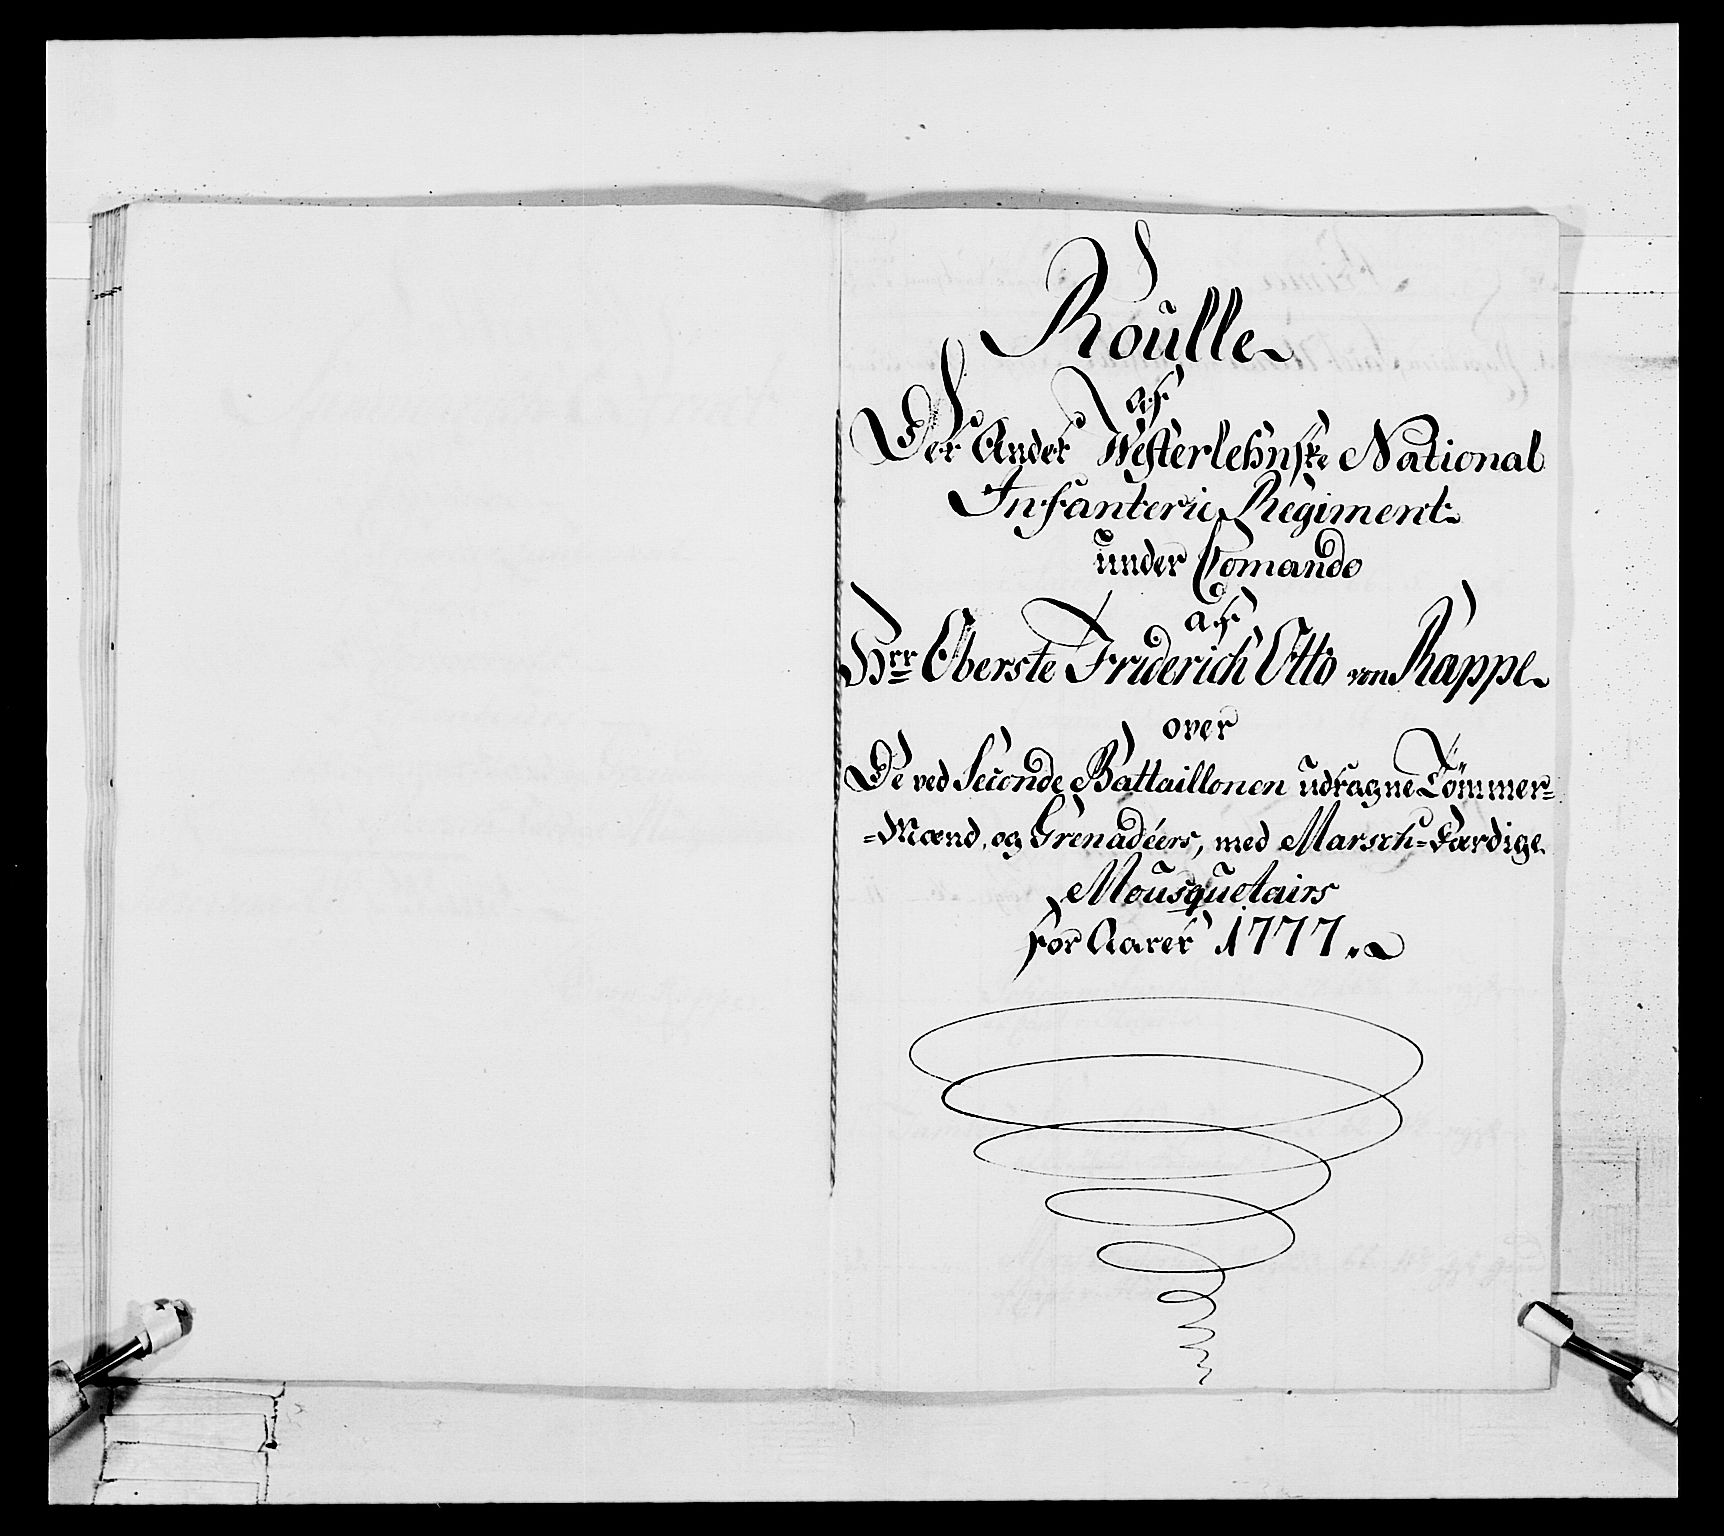 Roulle
af
Det Andet Westerlehnske National
Infanterie Regiment
under Comando
af
Hrr Oberste Friderich Otto von Rappe
over
De ved Seconde Battaillonen udtagne Tömmer=
=Mænd, og Grenadéers, med Marsch=Færdige
Mousquetairs
for Aaret 1777.